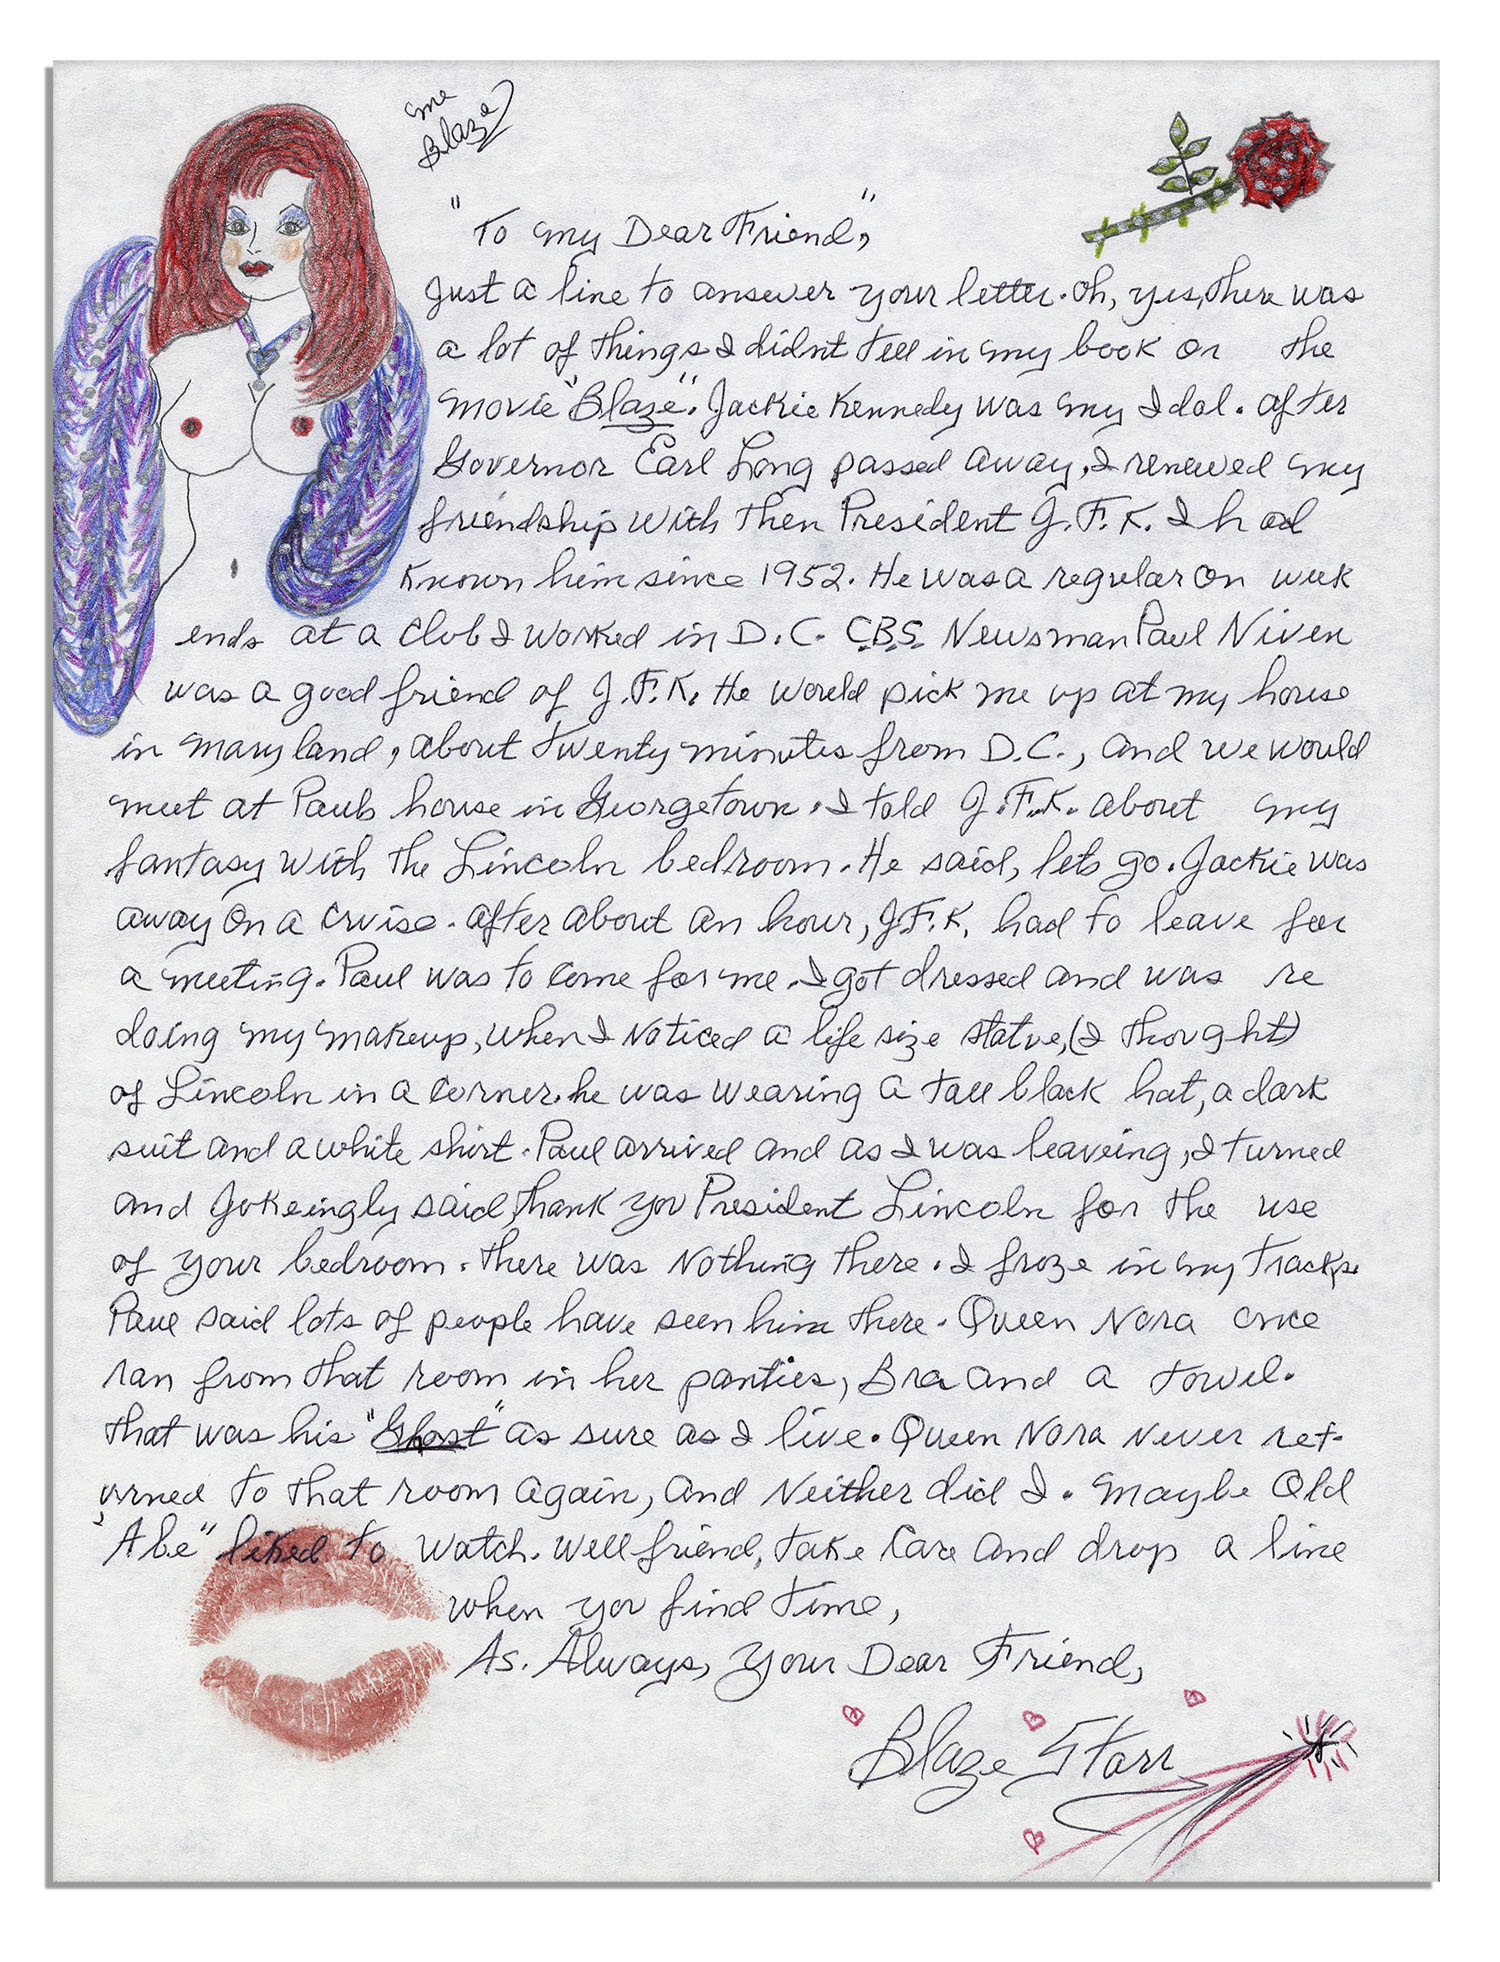 me
Blaze
"To my Dear Friend,"
Just a line to answer your letter. Oh, yes, there was
a lot of things I didnt tell in my book or the
movie "Blaze". Jackie Kennedy was my Idol. after
Governor Earl Long passed away, I renewed my
friendship with then President J.F.K. I had
known him since 1952. He was a regular on week
ends at a club I worked in D.C. CBS Newsman Paul Niven
was a good friend of J.F.K. He would pick me up at my house
in maryland, about twenty minutes from D.C., and we would
meet at Pauls house in Georgetown. I told J.F.K. about my
fantasy with the Lincoln bedroom. He said, lets go. Jackie was
away on a cruise. after about an hour, J.F.K. had to leave for
a meeting. Paul was to come for me. I got dressed and was re
doing my makeup, when I noticed a life size statue, (I thought)
of Lincoln in a corner. he was wearing a tall black hat, a dark
suit and a white shirt. Paul arrived and as I was leaveing, I turned
and Jokeingly said, thank you President Lincoln for the use
of your bedroom. there was nothing there. I froze in my tracks.
Paul said lots of people have seen him there. Queen Nora once
ran from that room in her panties, Bra and a towel.
that was his "Ghost" as sure as I live. Queen Nora never ret-
urned to that room again, and neither did I. maybe Old
"Abe" liked to watch. Well friend, take care and drop a line
when you find time,
As. Always, your Dear Friend,
Blaze Starr